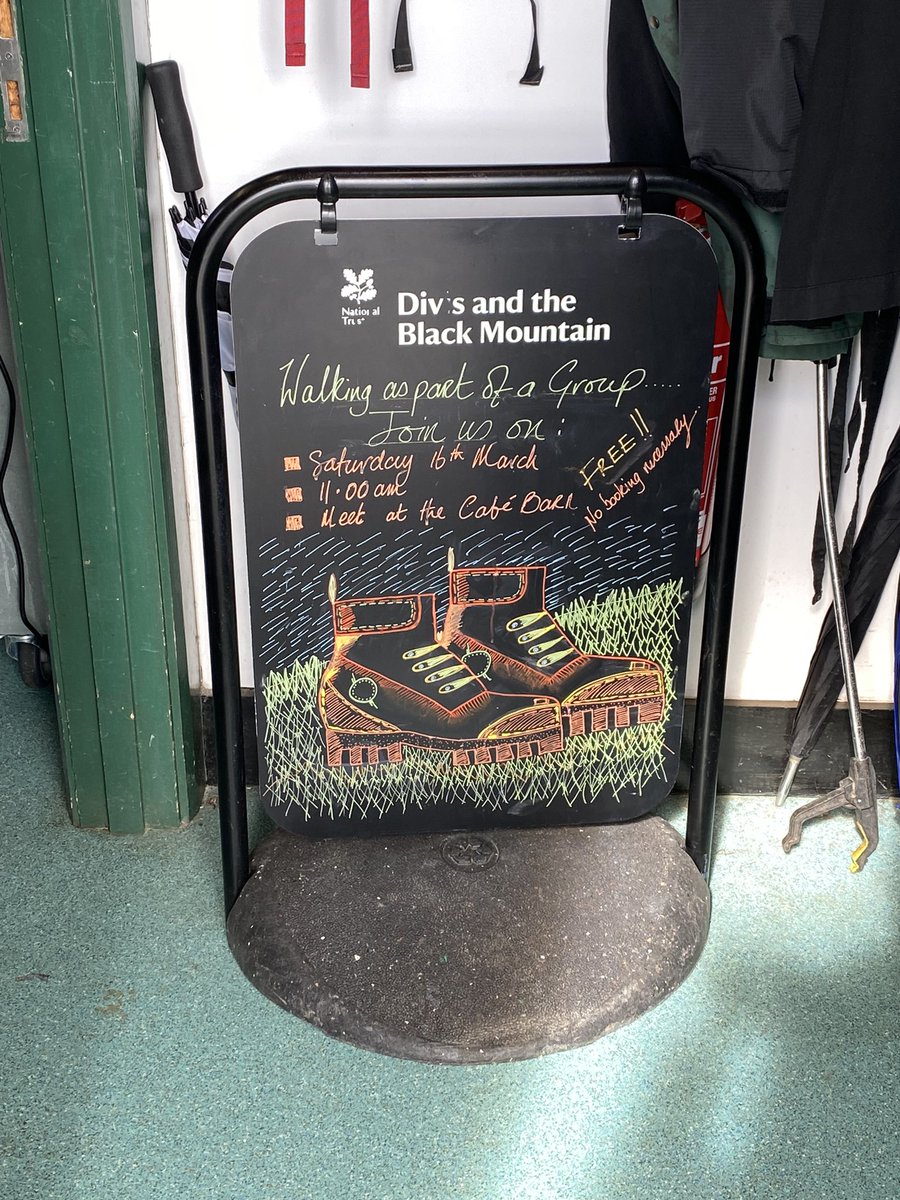 National
Trust
Divis and the
Black Mountain
Walking as part of a Group.....
Join us on:
Saturday 16th March
11.00am
Meet at the Café Barn
FREE!!
No booking necessary...